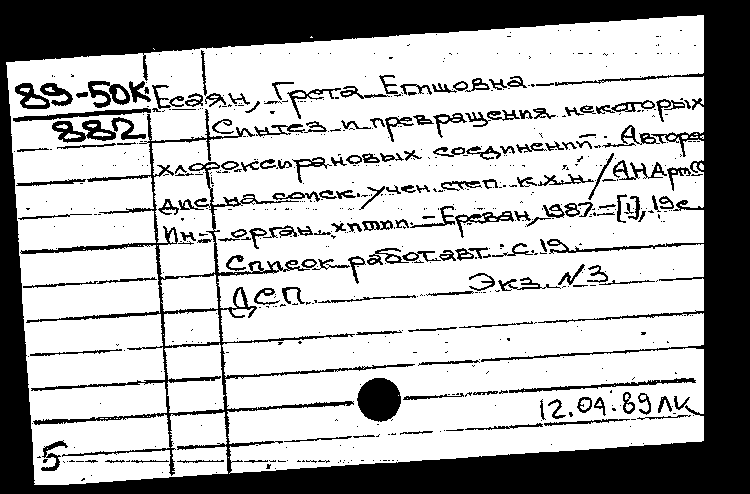 89-50К
882
Есаян, Грета Егишовна
Синтез и превращения некоторых
хлороксирановых соединений: Автореф
дис на соиск. учен. степ к.х.н / АН АрмСС
Ин-т орган. химии. - Ереван, 1987 - [1], 19 с
Список работ авт: с. 19.
ДСП Экз. N 3.
12.04.89 ЛК
5